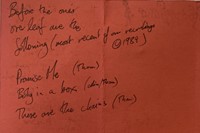 Before the ones
overleaf are the
following (most recent of our recordings
@1989)
Promise Me (Them)
Body in a box (Them)
These are the chains (Them)